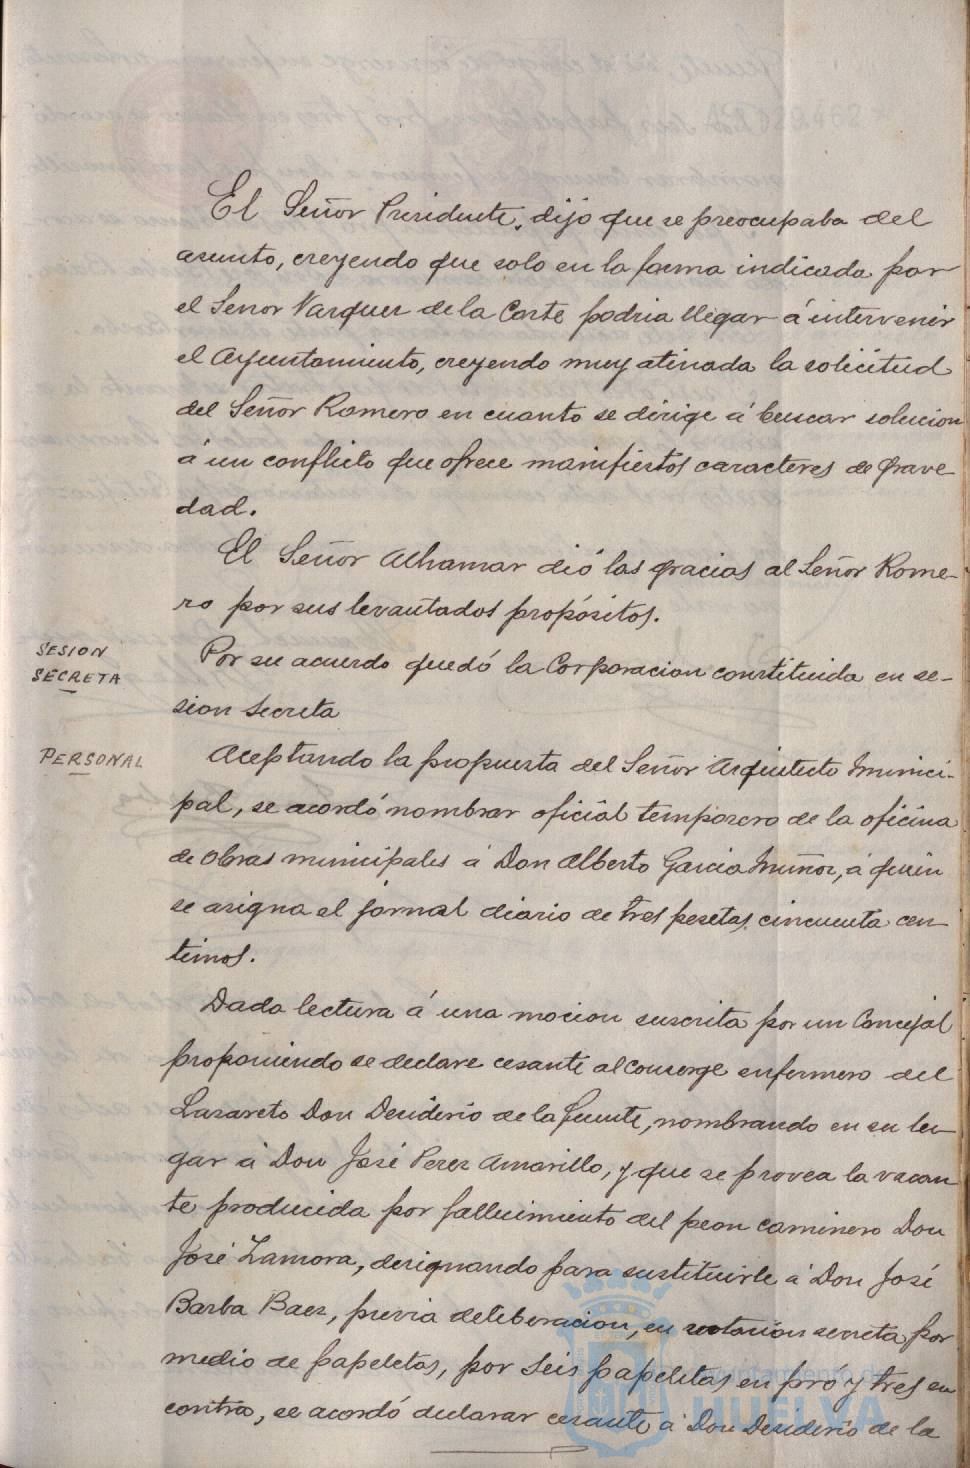 El Señor Presidente, dijo que se preocupaba del
asunto, creyendo que solo en la forma indicada por
el Señor Vazquez de la Corte podria llegar á intervenir
el Ayuntamiento, creyendo muy atinada la solicitud
del Señor Romero en cuanto se dirige á buscar solucion
á un conflicto que ofrece manifiestos caracteres de grave-
dad.
El Señor Alhamar dió las gracias al Señor Rome-
ro por sus levantados propósitos.
SESION
SECRETA
Por su acuerdo quedó la Corporacion constituida en se-
sion secreta
PERSONAL
Aceptando la propuesta del Señor Arquitecto Munici-
pal, se acordó nombrar oficial temporero de la oficina
de obras municipales á Don Alberto Garcia Muñoz, á quien
se asigna el jornal diario de tres pesetas cincuenta cen-
timos.
Dada lectura á una mocion suscrita por un Concejal
proponiendo se declare cesante al conserge enfermero del
Lazareto Don Desiderio de la Fuente, nombrando en su lu-
gar á Don José Perez Amarillo, y que se provea la vacan-
te producida por fallecimiento del peon caminero Don
José Zamora, designando para sustituirle á Don José
Barba Baez, previa deliberacion, en votacion secreta por
medio de papeletas, por seis papeletas en pró y tres en
contra, se acordó declarar cesante á Don Desiderio de la
Ayuntamiento de
HUELVA